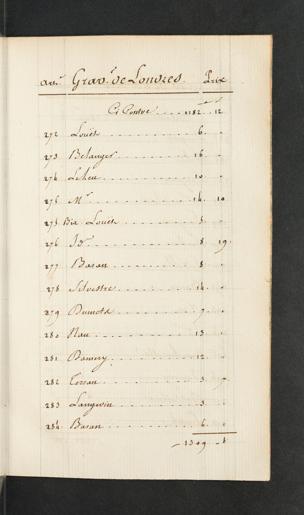 Grav.r de Londres. Prix
Ci Contre .... 1182 .. 12
272 Louis ........ 6 .
273 Belanger ........ 16 .
274 Leheu ........ 10 .
275 M.r ........ 14 . 10
275 Bis Louis ........ 5 .
276 Id.m ........ 8 . 19
277 Basan ........ 8 .
278 Silvestre ........ 14 .
279 Dumota ........ 9 .
280 Nau ........ 13 .
281 Damery ........ 12 .
282 ........ 3
283 Langevin ........ 3 .
284 Basan ........ 6 .
1309 .. 1